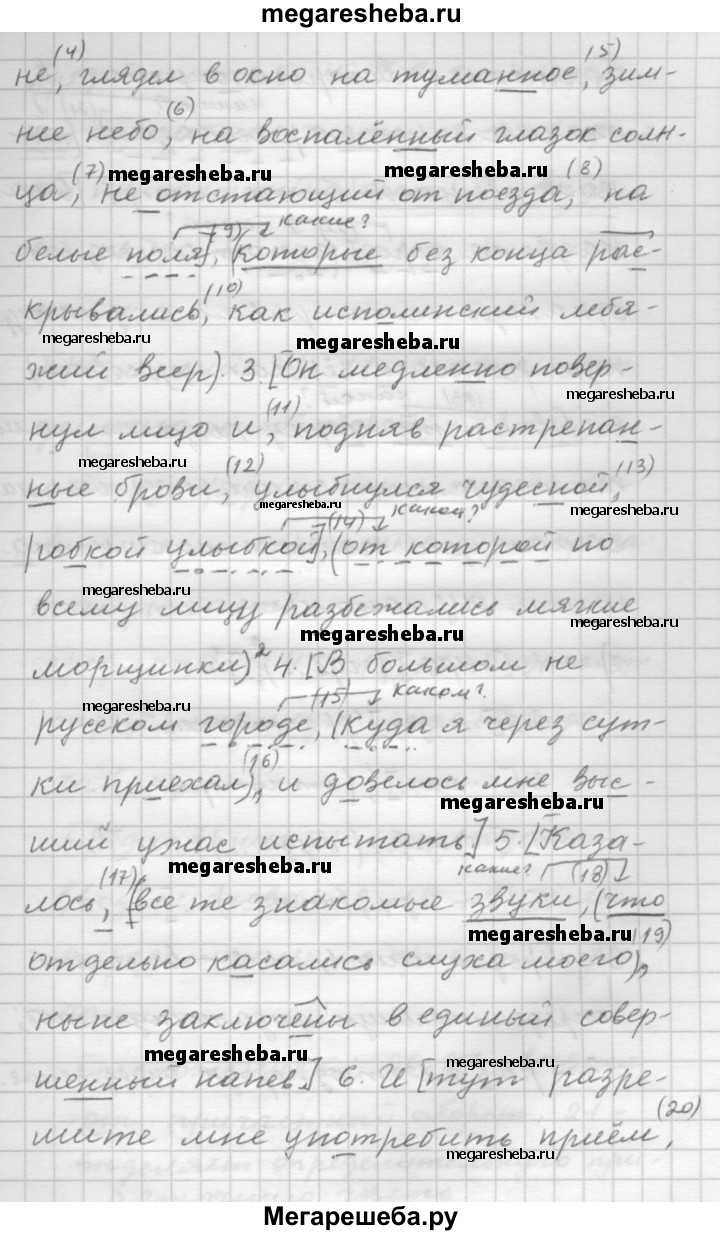 megaresheba.ru
(4) (5)
не, глядел в окно на туманное, зим-
(6)
нее небо, на воспалённый глазок солн-
(7) megaresheba.ru megaresheba.ru (8)
ца, не отстающий от поезда, на
(9) какие?
белые поля], (которые без конца рас-
(10)
крывались, как исполинский лебя-
megaresheba.ru megaresheba.ru
жий веер). 3. [Он медленно повер-
megaresheba.ru
(11)
нул лицо и, подняв растрепан-
megaresheba.ru (12) (13)
ные брови, улыбнулся чудесной,
megaresheba.ru megaresheba.ru
(14) каком?
робкой улыбкой], (от которой по
megaresheba.ru megaresheba.ru
всему лицу разбежались мягкие
megaresheba.ru
морщинки)2 4. [В большом не
megaresheba.ru
(15) каком?
русском городе, (куда я через сут-
(16)
ки приехал), и довелось мне выс-
megaresheba.ru
ший ужас испытать] 5. [Каза-
(17) megaresheba.ru какие? (18)
лось, [все те знакомые звуки, (что
megaresheba.ru (19)
отдельно касались слуха моего),
ныне заключены в единый совер-
megaresheba.ru megaresheba.ru
шенный напев.] 6. И [тут разре-
(20)
мите мне употребить приём,
megaresheba.ru megaresheba.ru
Мегарешеба.ру